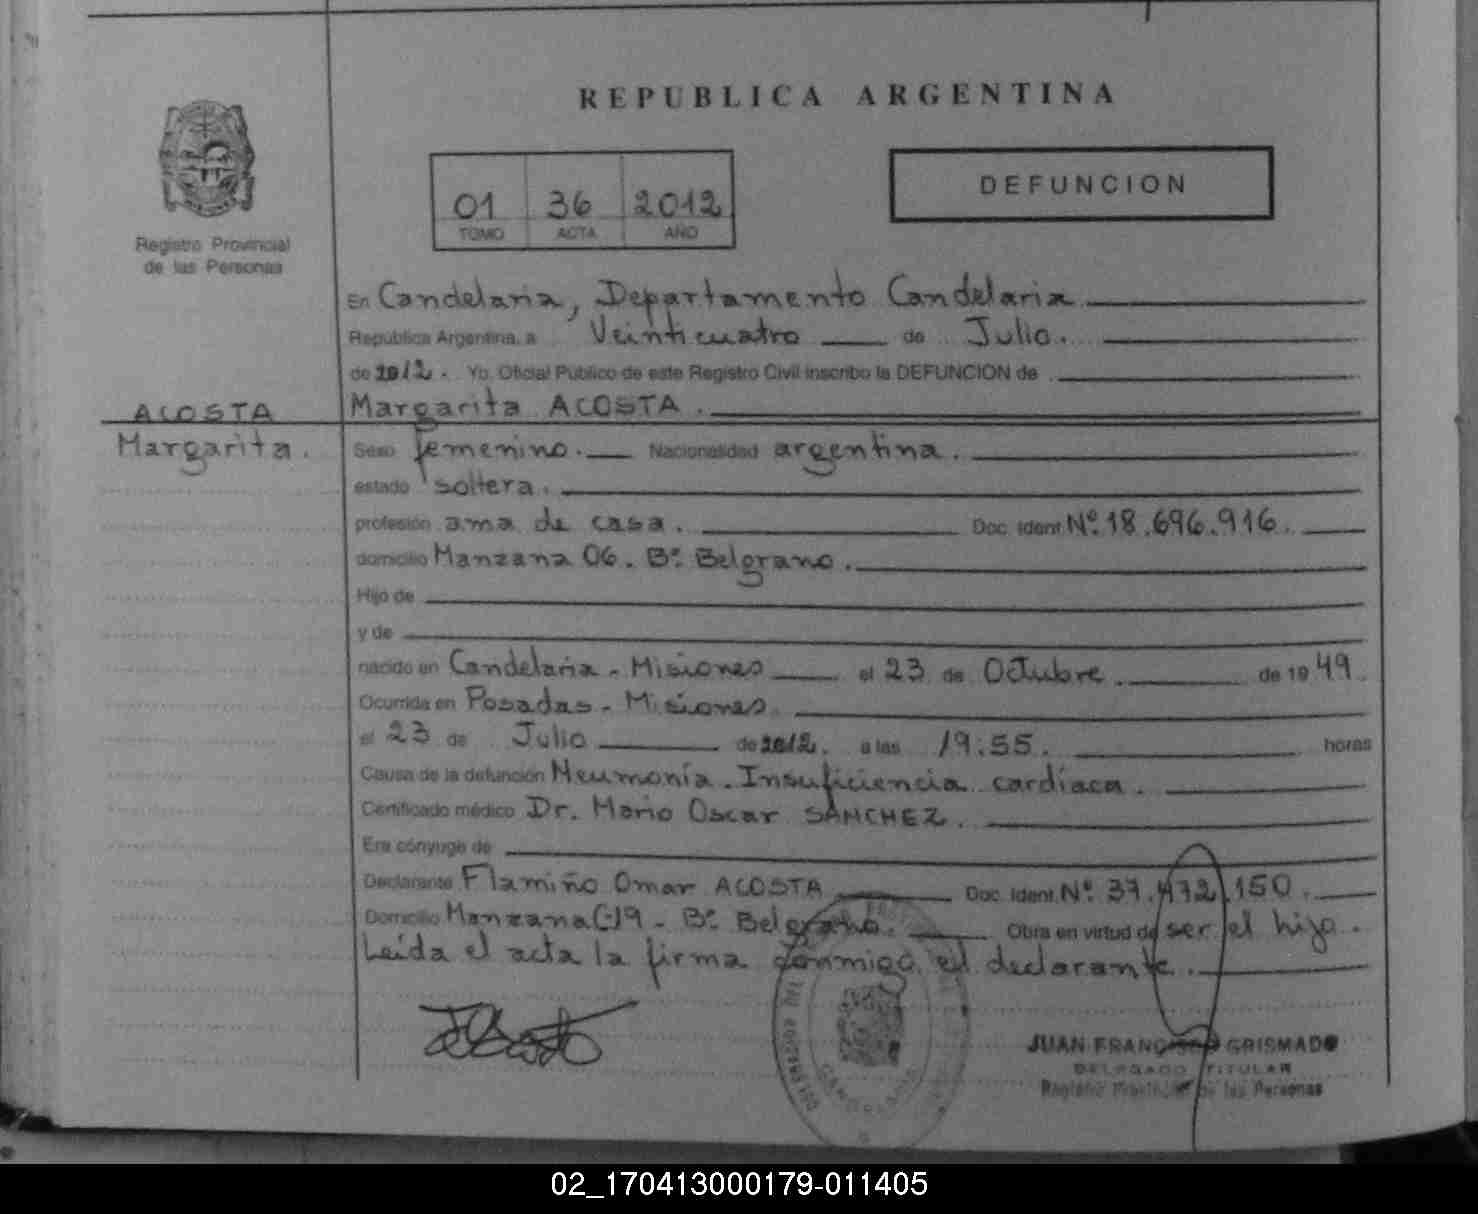 REPUBLICA ARGENTINA
Registro Provincial
de las Personas
01 36 2012
TOMO ACTA AÑO
DEFUNCION
En Candelaria, Departamento Candelaria
República Argentina, a Veinticuatro de Julio.
de 2012. Yo, Oficial Público de este Registro Civil inscribo la DEFUNCION de
ACOSTA
Margarita.
Margarita ACOSTA.
Sexo femenino. Nacionalidad argentina.
estado soltera.
profesión ama de casa. Doc. Ident. Nº 18.696.916.
domicilio Manzana 06. Bº Belgrano.
Hijo de
y de
nacido en Candelaria - Misiones el 23 de Octubre de 1949.
Ocurrida en Posadas - Misiones.
el 23 de Julio de 2012. a las 19:55. horas
Causa de la defunción Neumonía. Insuficiencia cardíaca.
Certificado médico Dr. Mario Oscar SANCHEZ.
Era cónyuge de
Declarante Flamiño Omar ACOSTA Doc. Ident. Nº 37.472.150.
Domicilio Manzana C-19 - Bº Belgrano. Obra en virtud de ser el hijo.
Leída el acta la firma conmigo el declarante.
JUAN FRANCISCO GRISMADO
DELEGADO TITULAR
Registro Provincial de las Personas
CANDELARIA
02_170413000179-011405